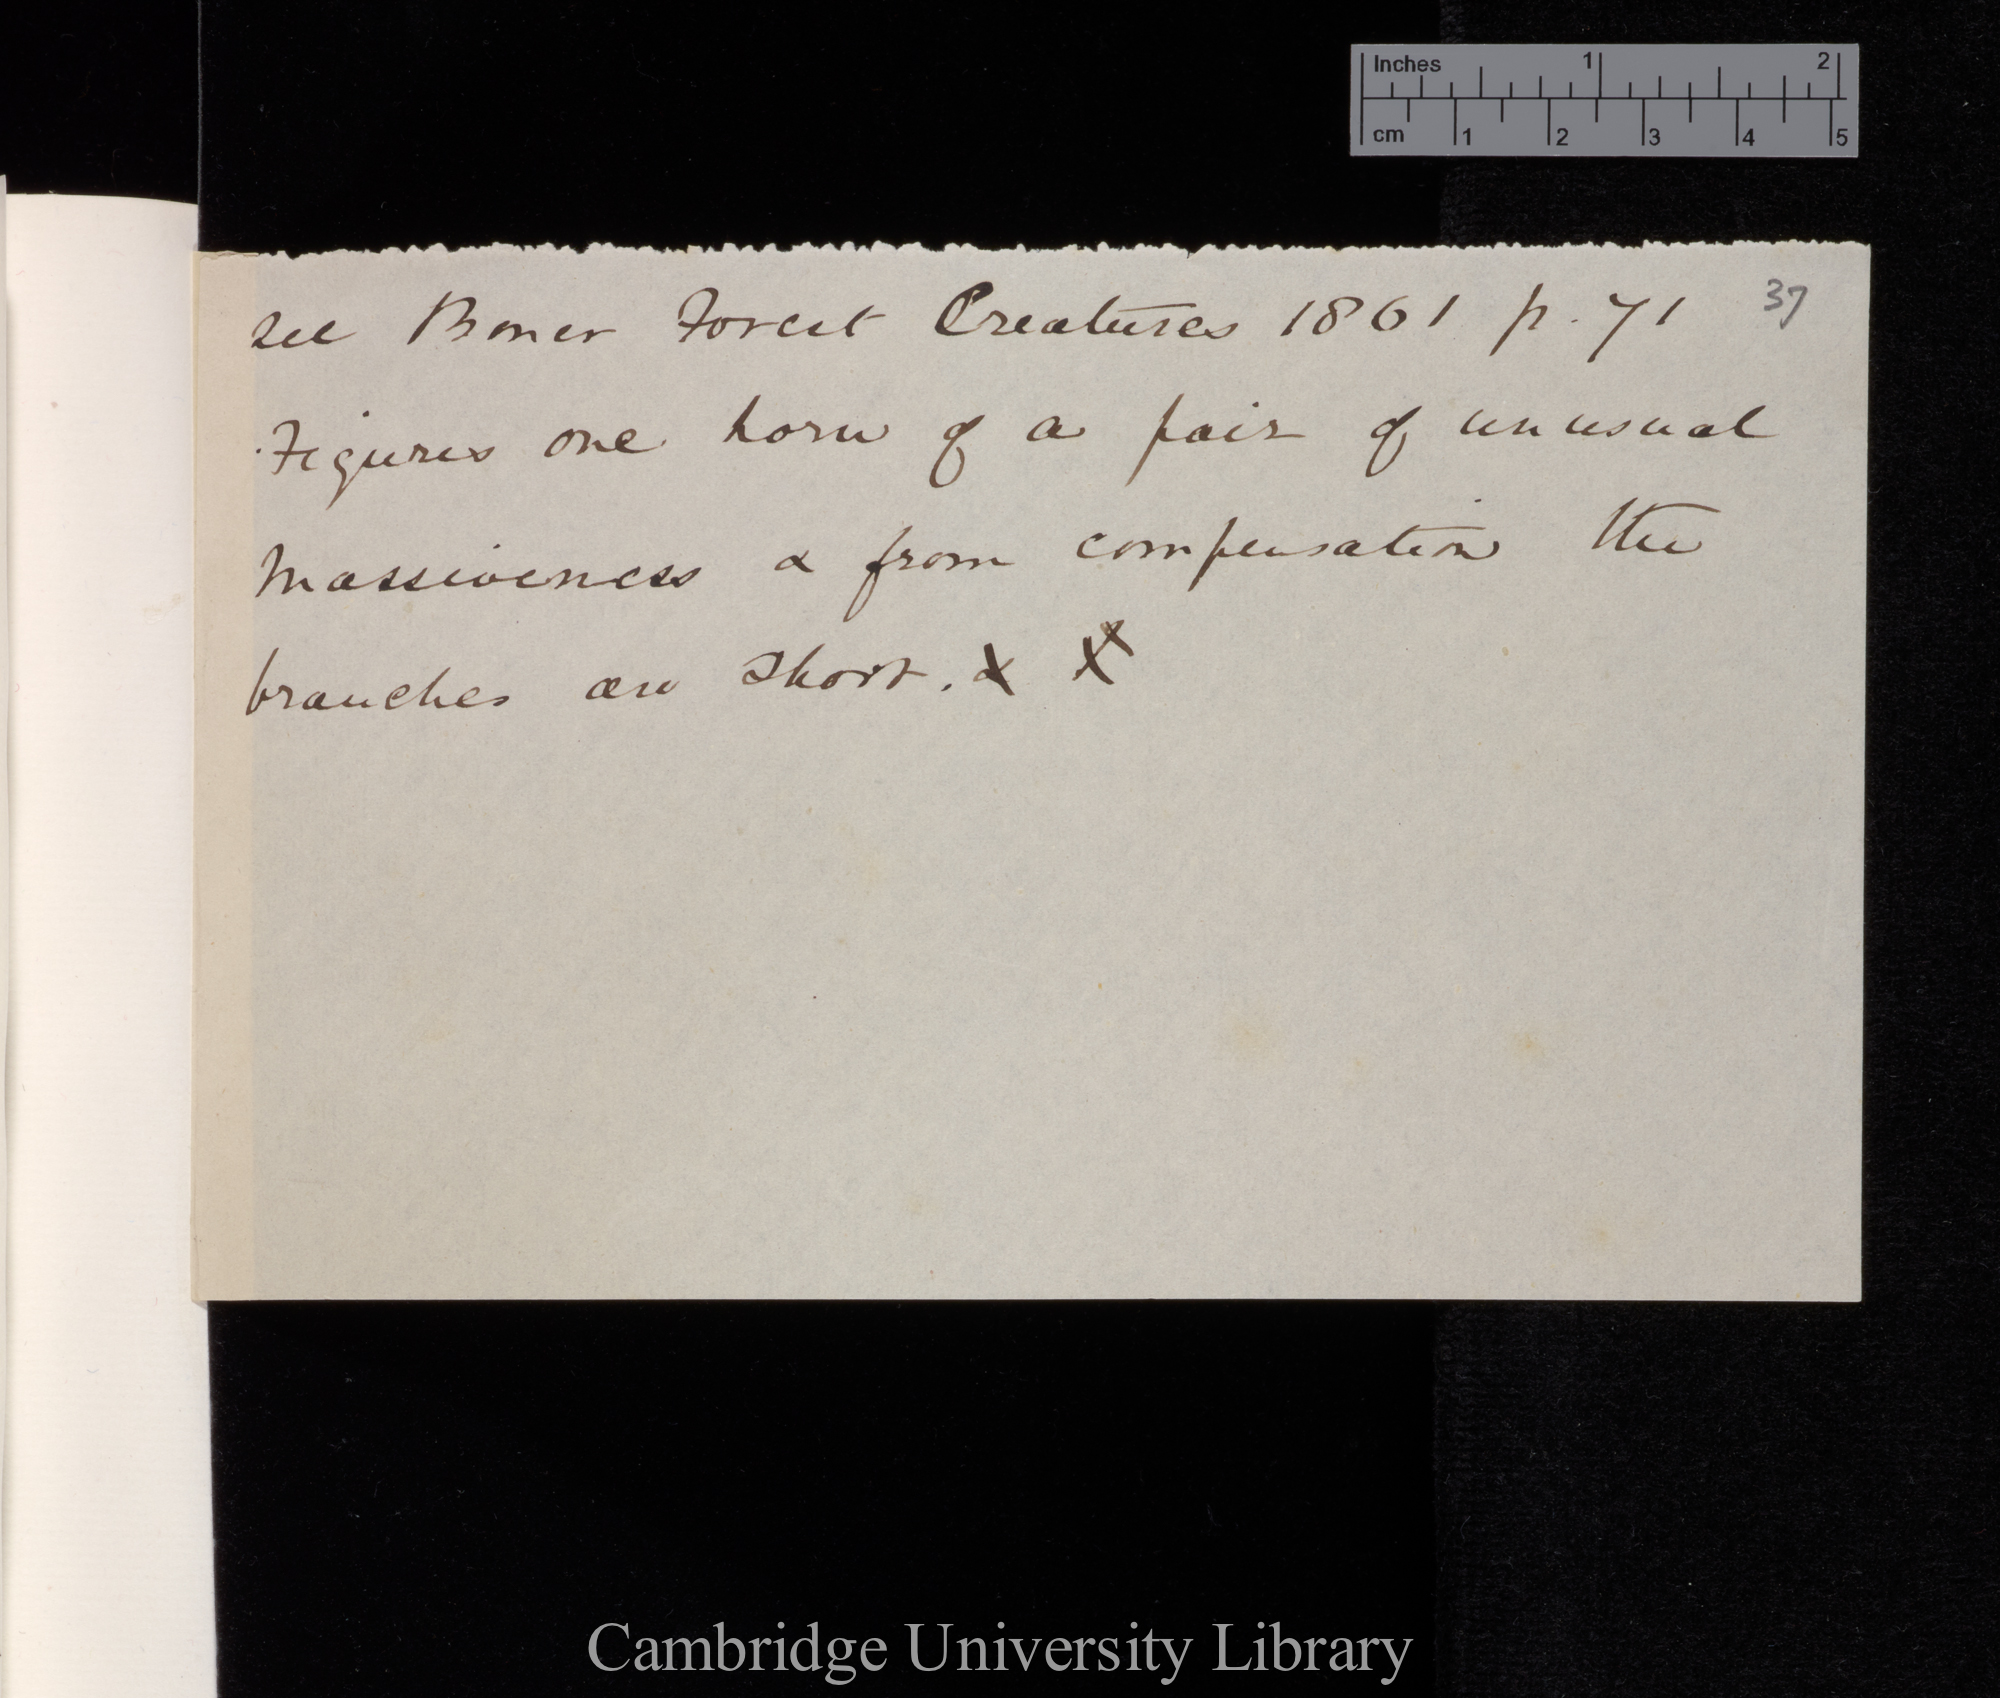 Inches 1 2
cm 1 2 3 4 5
see Boner Forest Creatures 1861 p. 71 37
Figures one horn of a pair of unusual
massiveness & from compensation the
branches are short. & X
Cambridge University Library